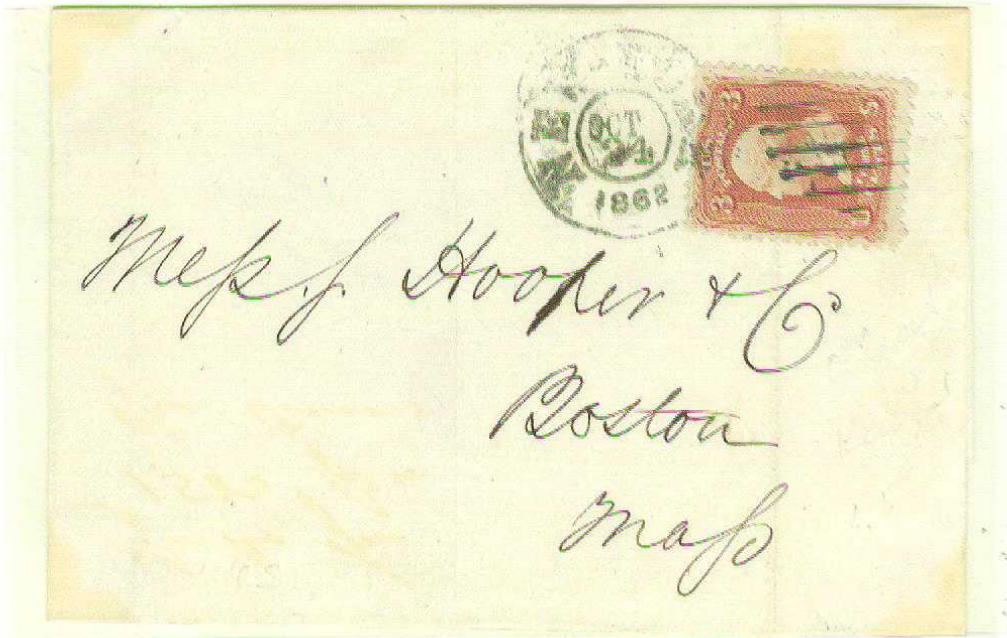 OCT
24
1862
3 3
U
Messrs. Hooper & Co
Boston
Mass